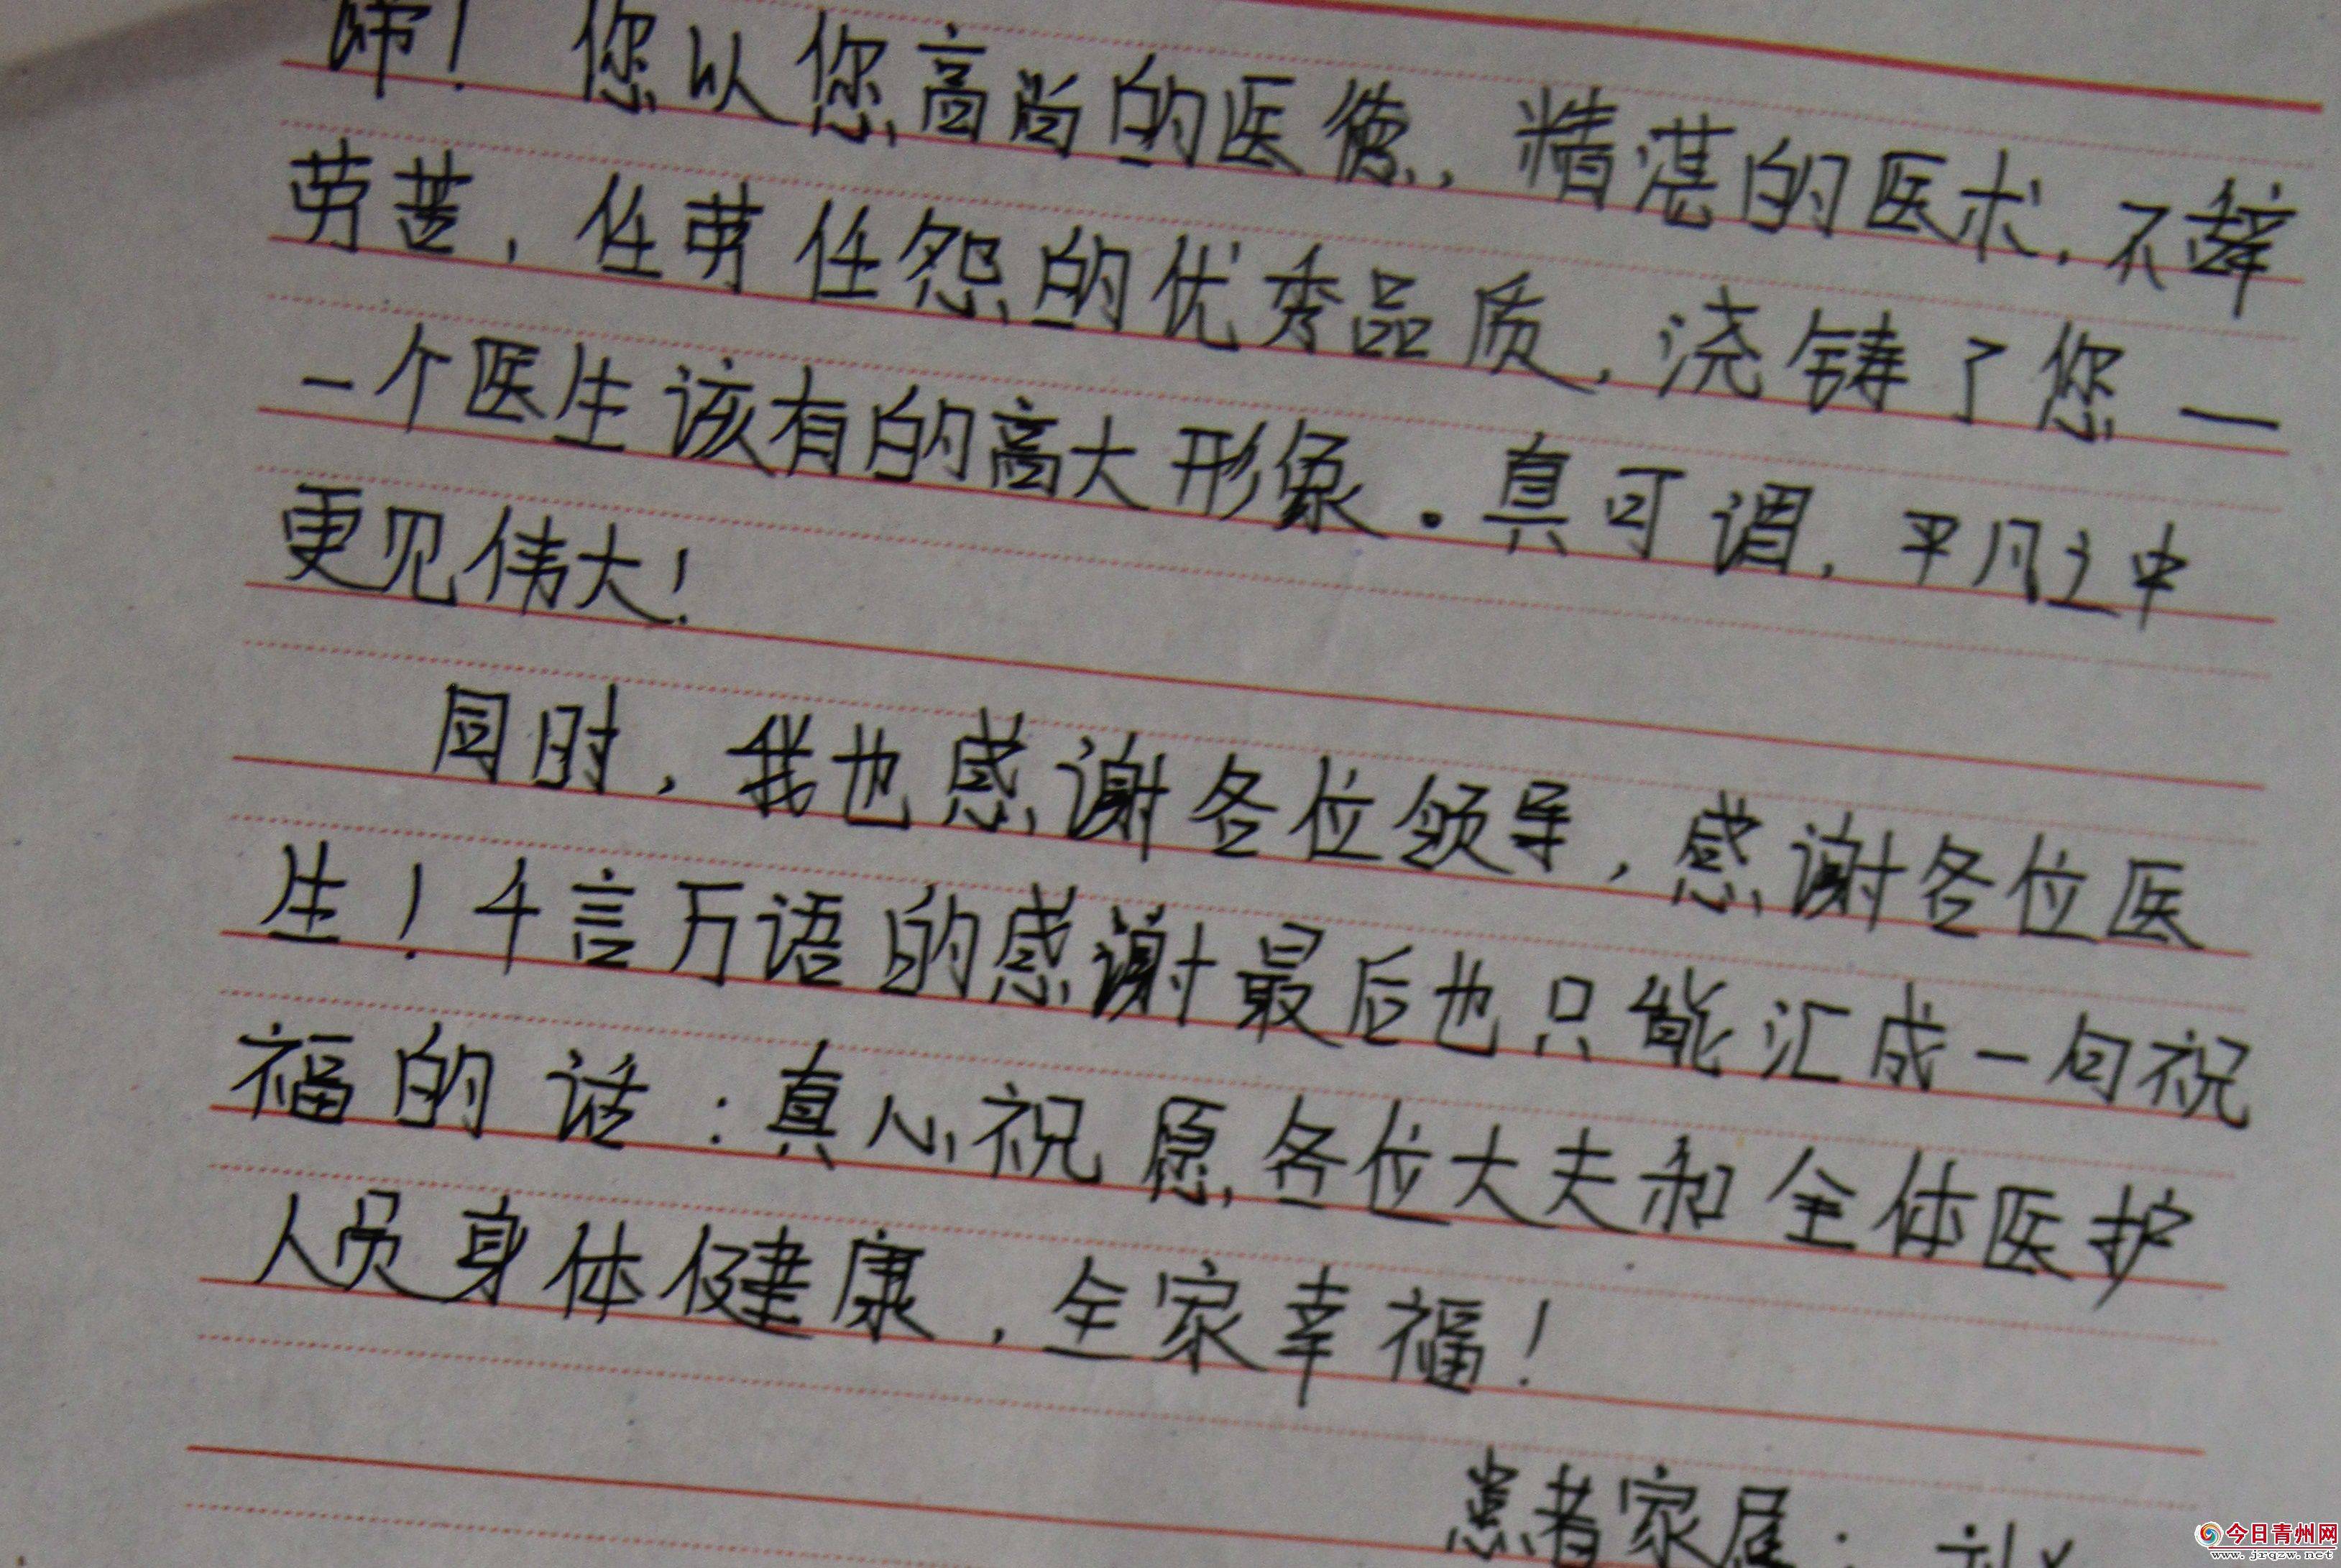 师！您以您高尚的医德，精湛的医术，不辞
劳苦，任劳任怨的优秀品质，浇铸了您一
一个医生该有的高大形象。真可谓，平凡之中
更见伟大！
同时，我也感谢各位领导，感谢各位医
生！千言万语的感谢最后也只能汇成一句祝
福的话：真心祝愿各位大夫和全体医护
人员身体健康，全家幸福！
患者家属：
今日青州网
www.jrqzw.net